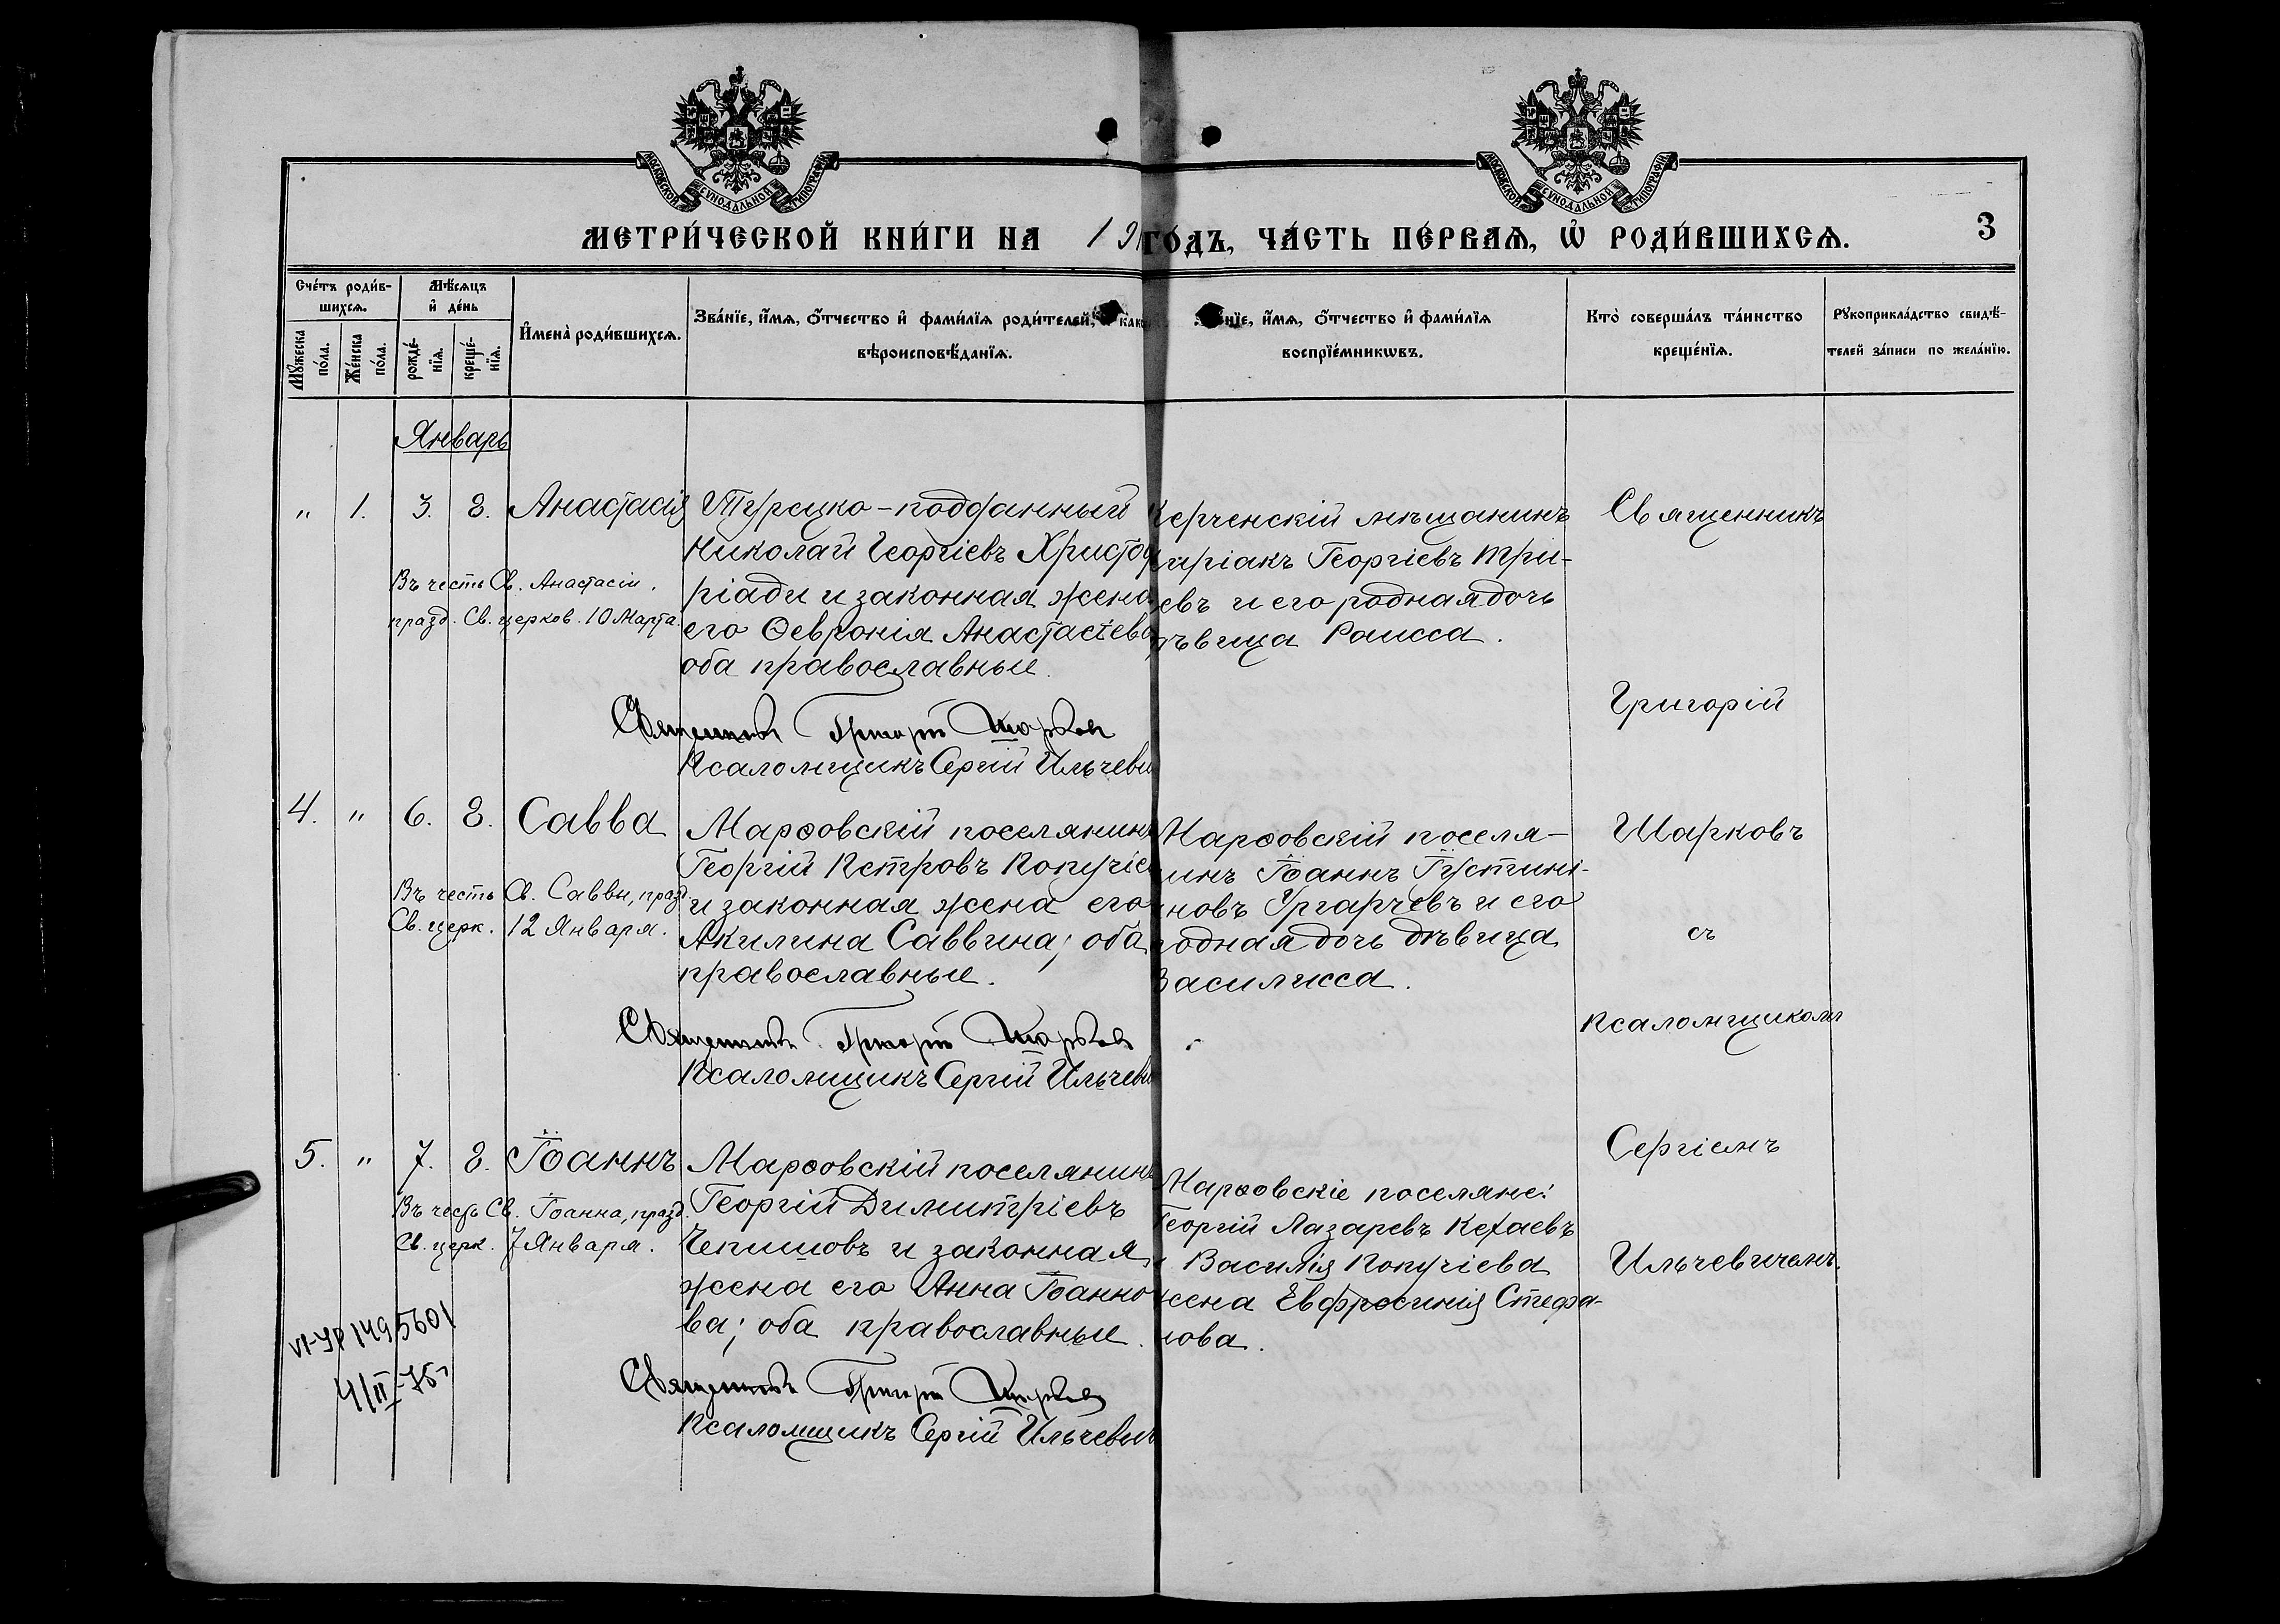 МОСКОВСКОЙ СѴНОДАЛЬНОЙ ТИПОГРАФІИ
МОСКОВСКОЙ СѴНОДАЛЬНОЙ ТИПОГРАФІИ
МЕТРИ́ЧЕСКОЙ КНИ́ГИ НА 19 ГО́ДЪ, ЧА́СТЬ ПЕ́РВАѦ, Ѡ҆ РОДИ́ВШИХСѦ.
3
Сче́тъ роди́в-
шихсѧ.
Мѣ́сѧцъ
и҆ де́нь
Мꙋ́жеска
по́ла.
Же́нска
по́ла.
рожде́-
нїѧ.
креще́-
нїѧ.
И҆мена̀ роди́вшихсѧ.
Зва́нїе, и҆́мѧ, ѻ҆́тчество и҆ фами́лїѧ роди́телей, и҆ како
вѣроисповѣ́данїѧ.
нїе, и҆́мѧ, ѻ҆́тчество и҆ фами́лїѧ
воспрїе́мникѡвъ.
Кто̀ соверша́лъ та́инство
креще́нїѧ.
Рꙋкоприкла́дство свидѣ́-
телей за́писи по жела́нїю.
Январь
" 1. 3. 8. Анастасія
Въ честь Св. Анастасіи,
празд. Св. церков. 10 Марта.
Турецко-подданный
Николай Георгіевъ Христофо
ріади и законная жена
его Ѳевронія Анастасіева
оба православные.
Священникъ Григорій Шарковъ
Псаломщикъ Сергій Ильчеви
Керченскій мѣщанинъ
Киріакъ Георгіевъ Три-
евъ и его родная дочь
дѣвица Раисса.
Священникъ
Григорій
4. " 6. 8. Савва
Въ честь Св. Саввы, празд
Св. церк. 12 Января.
Марѳовскій поселянинъ
Георгій Петровъ Копучіев
и законная жена его
Акилина Саввина; оба
православные.
Священникъ Григорій Шарковъ
Псаломщикъ Сергій Ильчеви
Марѳовскій поселя-
нинъ Іоаннъ Іустині-
новъ Ургарчевъ и его
родная дочь дѣвица
Василисса.
Шарковъ
съ
псаломщикомъ
5. " 7. 8. Іоаннъ
Въ честь Св. Іоанна, празд.
Св. церк. 7 Января.
Марѳовскій поселянинъ
Георгій Димитріевъ
Чепишовъ и законная
жена его Анна Іоанно
ва; оба православные.
Священникъ Григорій Шарковъ
Псаломщикъ Сергій Ильчевич
Марѳовскіе поселяне:
Георгій Лазаревъ Кехаевъ
и Василія Копучіева
жена Евфросинія Стефа-
нова.
Сергіемъ
Ильчевичемъ.
VI-УР 1495601
4/II-75г